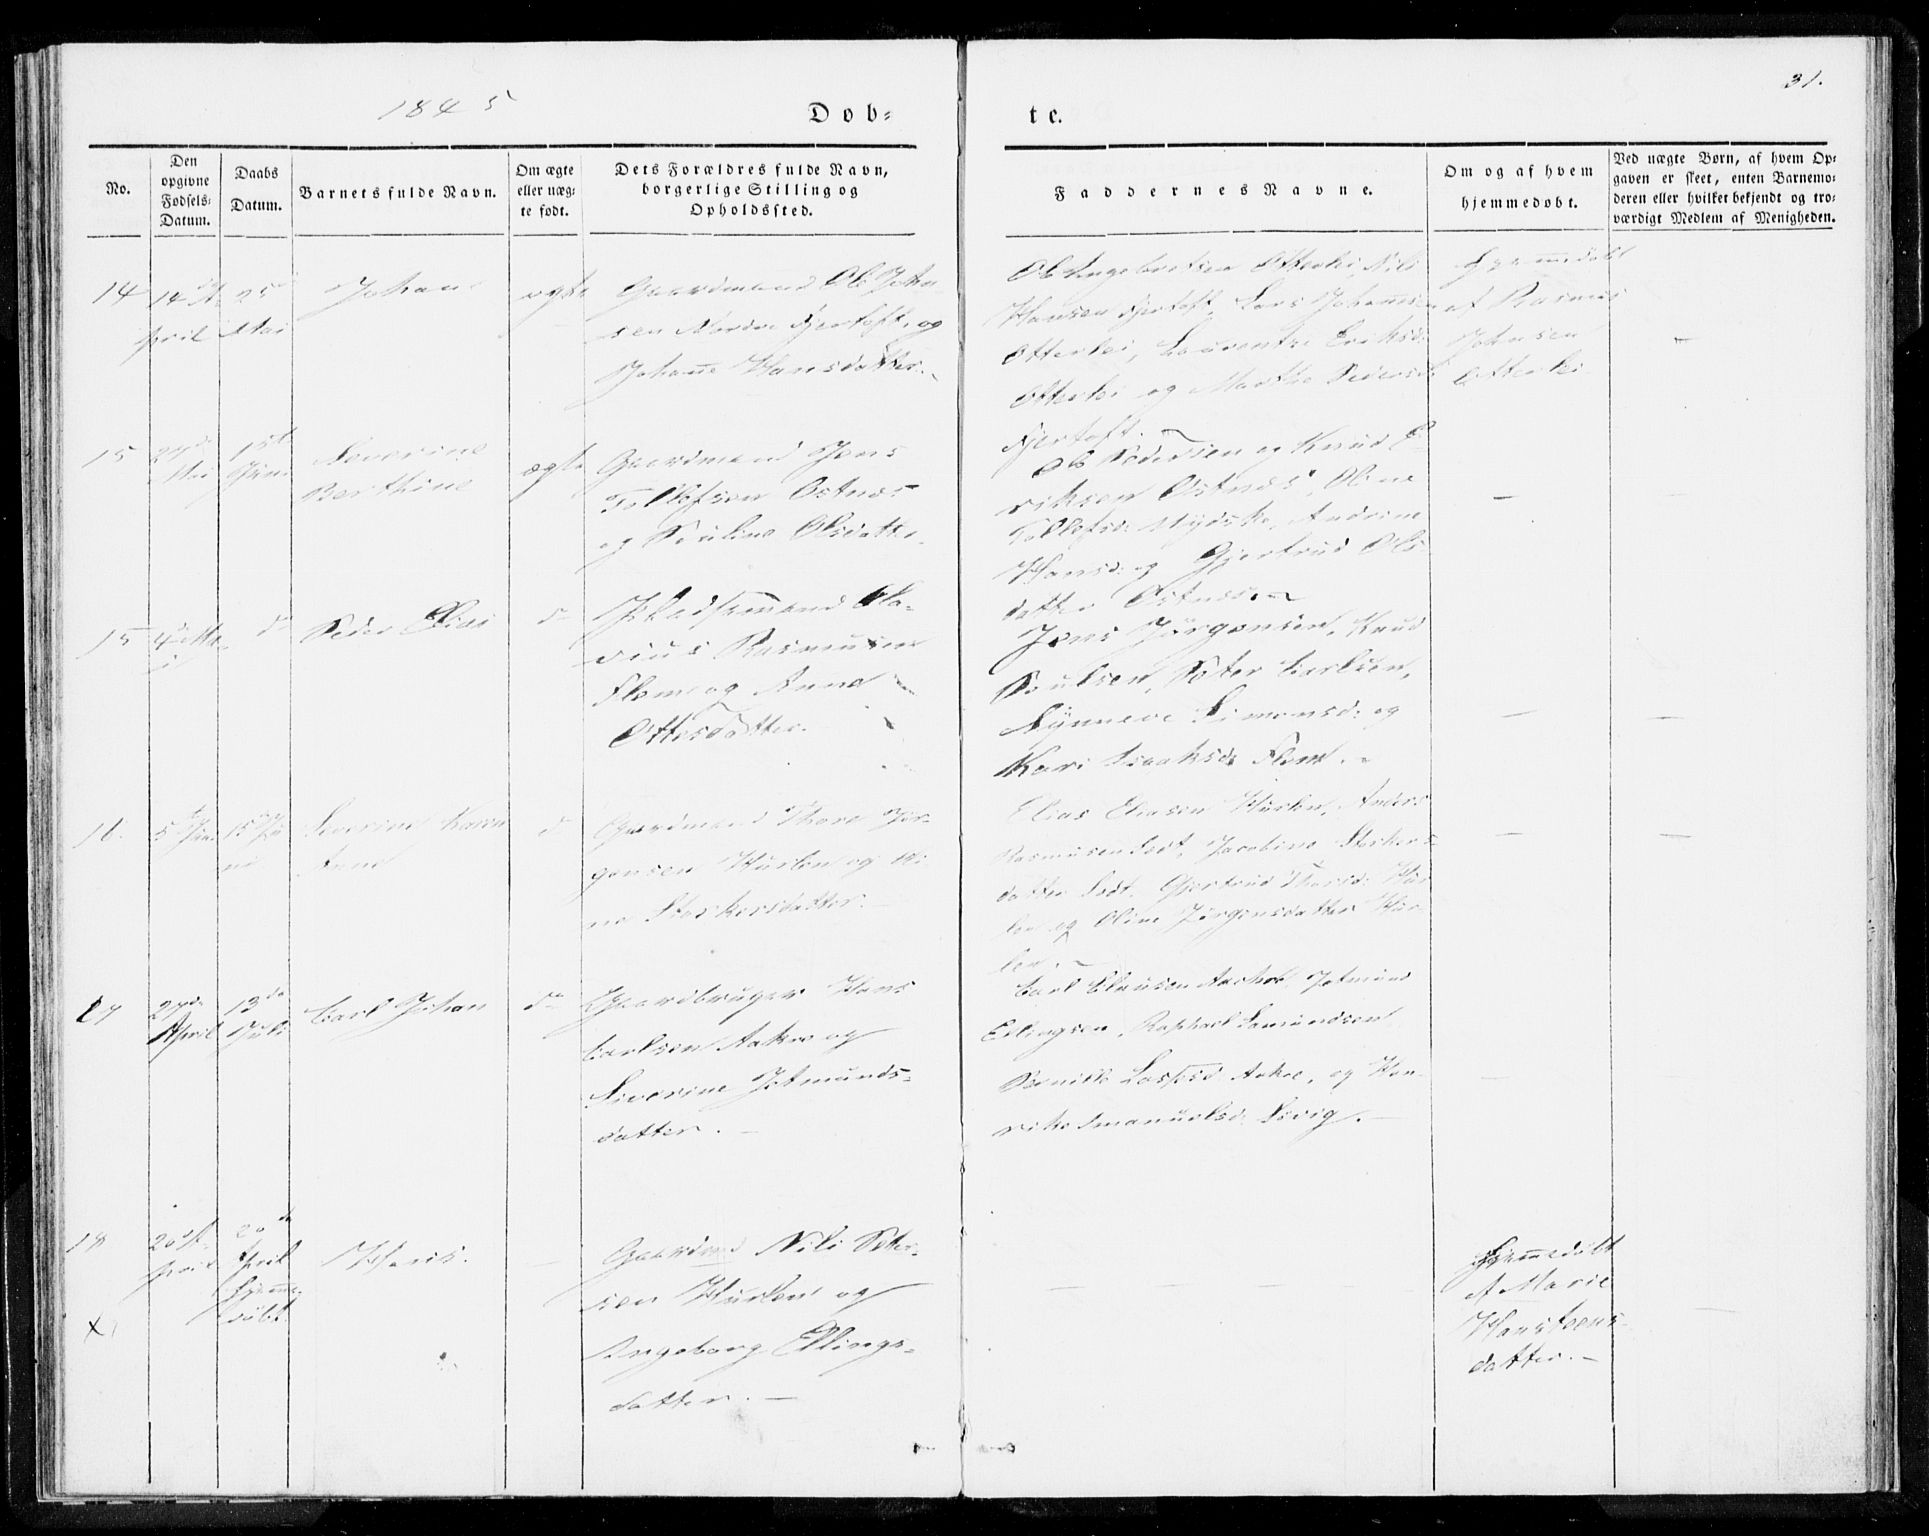 1845
Dob=
te.
31.
No.
Den
opgivne
Fodsels=
Datum.
Daabs
Datum.
Barnets fulde Navn.
Om ægte
eller uæg=
te fodt.
Dets Forældres fulde Navn,
borgerlige Stilling og
Opholdssted.
Faddernes Navne.
Om og af hvem
hjemmedobt.
Ved uægte Børn, af hvem Op=
gaven er skeet, enten Barnemo=
deren eller hvilket bekjendt og tro=
værdigt Medlem af Menigheden.
14
14 A-
pril
25
Mai
Johan
ægte
Gaardmand Ole John-
sen Nordre Fjertoft, og
Johanne Hansdatter.
Ole Ingebretsen Otterlei, Nils
Hansen Fjertoft, Lars Johannesen
Otterlei, Laurentze Eriksd:
Otterlei og Marthe Pedersd:
Fjertoft.
Hjemmedøbt
af Rasmus
Johnsen
Otterlei
15
27de
Mai
15de
Juni
Severine
Berthine
ægte
Gaardmand Jens
Tollefsen Østnæs
og Pauline Olsdatter.
Ole Pedersen og Knud E-
riksen Østnæs, Oline
Tollefsd: Mydske, Andrine
Hansd: og Gjertrud Ols-
datter Østnæs.
15
4de Ma-
i
do
Peder Elias
do
Pladsemand Ola-
vius Rasmusen
Flem og Anne
Ottesdatter.
Jens Jørgensen, Knud
Poulsen, Peter Carlsen,
Synneve Simonsd: og
Kari Isaaksd: Flem.
16.
5te Juni
15de Ju-
ni
Severine Karen
Anne
do
Gaardmand Thore Jør-
gensen Hurlen og
Sterkersdatter.
Elias Eliasen Hurlen, Anders
Rasmusen, Jacobine Sterkers-
datter, Gjertrud Thorsd: Hur-
len og Oline Jørgensdatter Hur-
len.
17
27de
April
13de
Juli
Carl Johan
do
Gaardbruger Hans
Carlsen Aakre og
Siverine Jetmunds-
datter.
Carl Clausen Aakre, Jetmund
Ellingsen, Raphael Samundsen
Pernille Lassesd: Aakre, og Hen-
rike Imanuelsd: Løvig.
18
20 A-
pril
20de
April
hjemme-
døbt.
Hans.
Gaardmand Nils Peter-
sen Hurlen og
Ingeborg Ellings-
datter.
Hjemmedøbt
af Marie
Hans
datter.